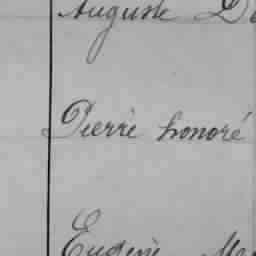 Auguste
Pierre honoré
Eugène